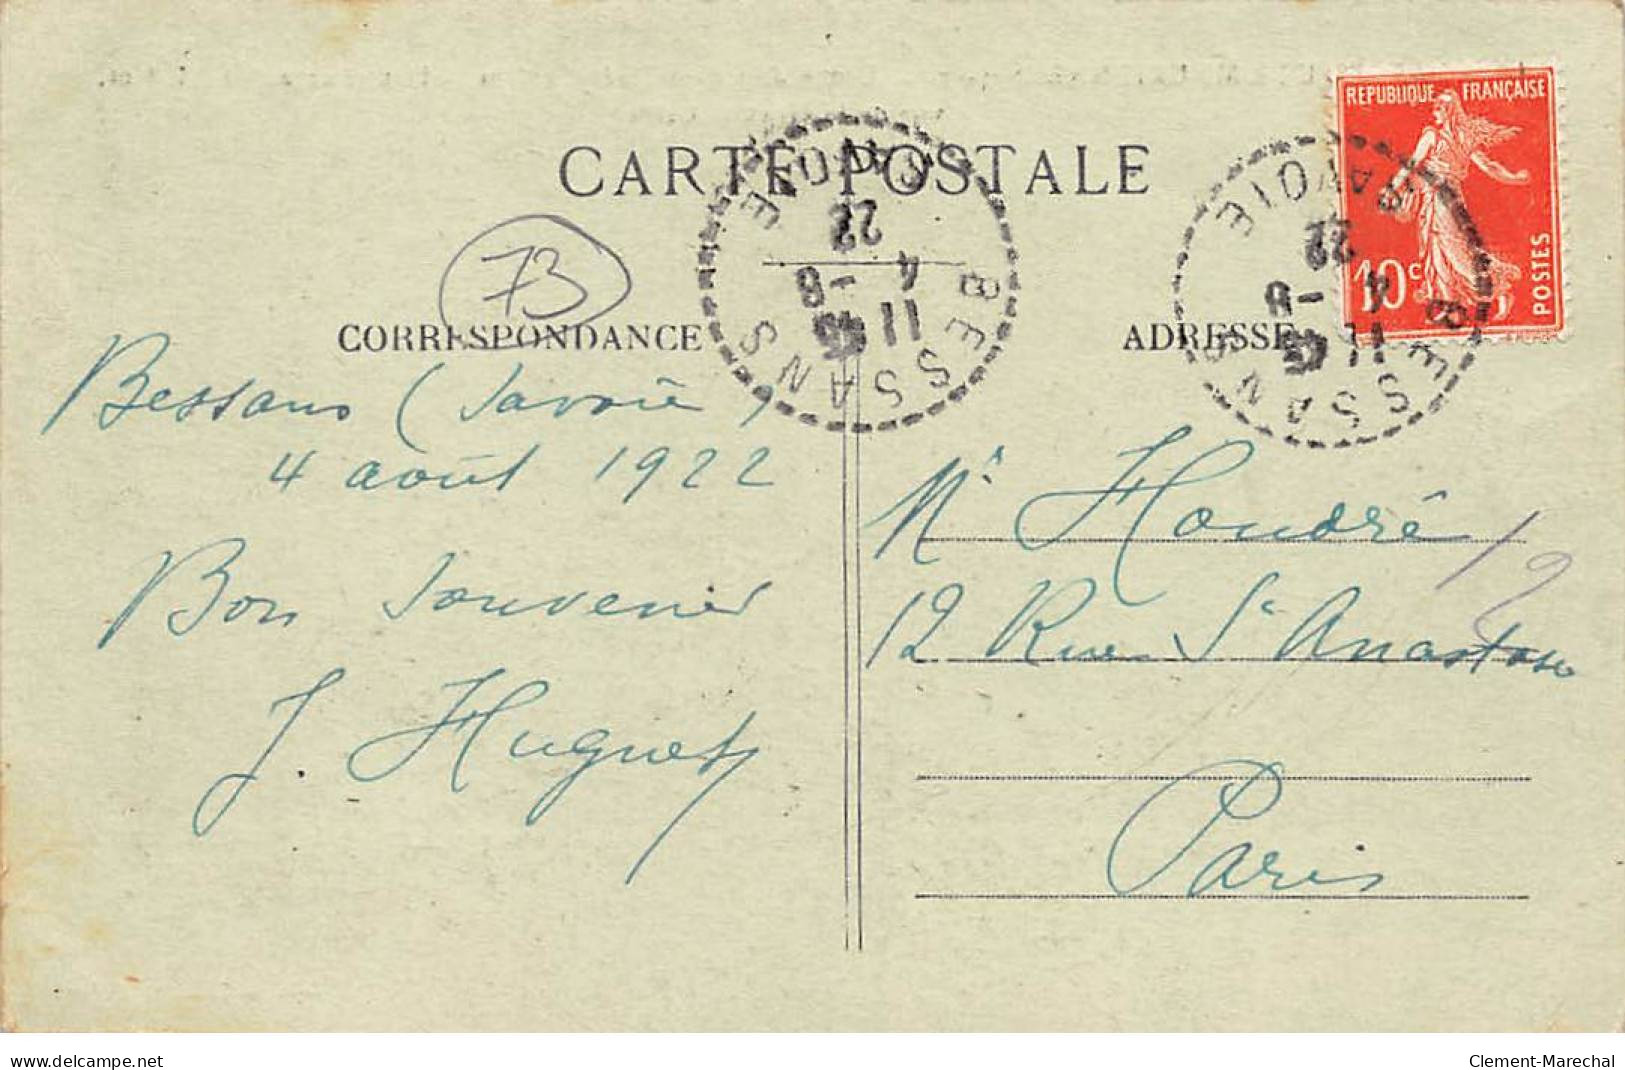 CARTE POSTALE
REPUBLIQUE FRANÇAISE
10c
POSTES
BESSANS
SAVOIE
11 45
4 -8
22
BESSANS
SAVOIE
11 45
4 -8
22
73
CORRESPONDANCE
ADRESSE
Bessans (Savoie)
4 août 1922
Bon souvenir
J. Huguet
Mr Houdré
12 Rue St Anastase
Paris
12
www.delcampe.net
Clement-Marechal